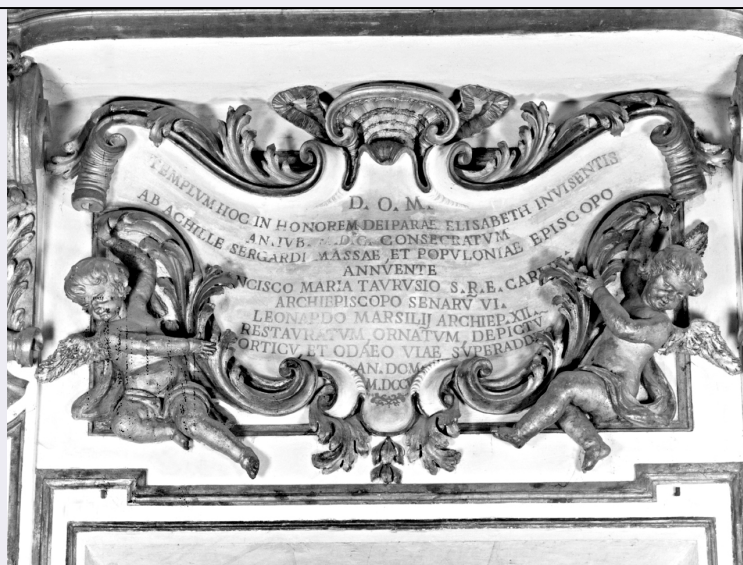 D. O. M.
TEMPLVM HOC IN HONOREM DEIPARAE ELISABETH INVISENTIS
AN. IVB. M.D.C. CONSECRATVM
AB ACHILLE SERGARDI MASSAE ET POPVLONIAE EPISCOPO
ANNVENTE
NCISCO MARIA TAVRVSIO S.R.E. CARD
ARCHIEPISCOPO SENARV VI.
LEONARDO MARSILIJ ARCHIEP. XII.
RESTAVRATVM, ORNATVM, DEPICTV
ORTICV ET VIAE SVPERADD
AN. DOM.
M.DCC